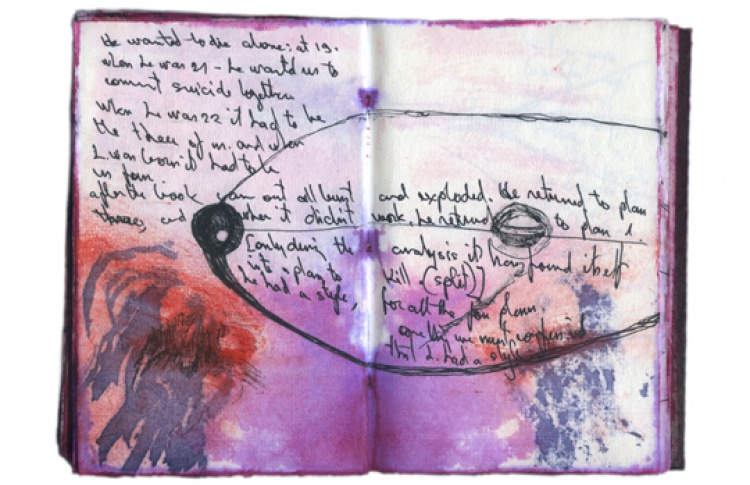 He wanted to die alone: at 19.
when he was 21 - he wanted us to
commit suicide together
when he was 22 it had to be
the three of us. and when
I. was born it had to be
us four.
after the book came out all burnt and exploded. He returned to plan
three, and when it didn't work, he returned to plan 1.
[only during the analysis it has found itself
into a plan to kill (split)]
he had a style, for all the four plans.
something we must explain is
that I. had a style